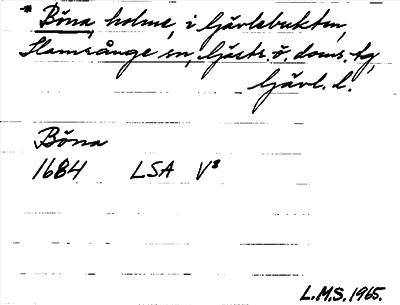 * Böna, holme, i Gävlebukten,
Hamrånge sn, Gästr. ö. doms. tg,
Gävl. l.
Böna
1684 LSA V8
L.M.S. 1965.